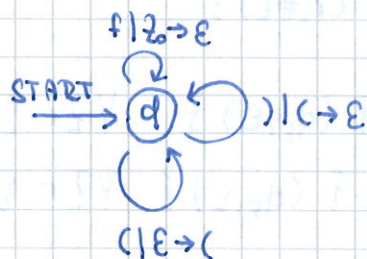 f|z₀→ε
START
q
)|(→ε
(|ε→(